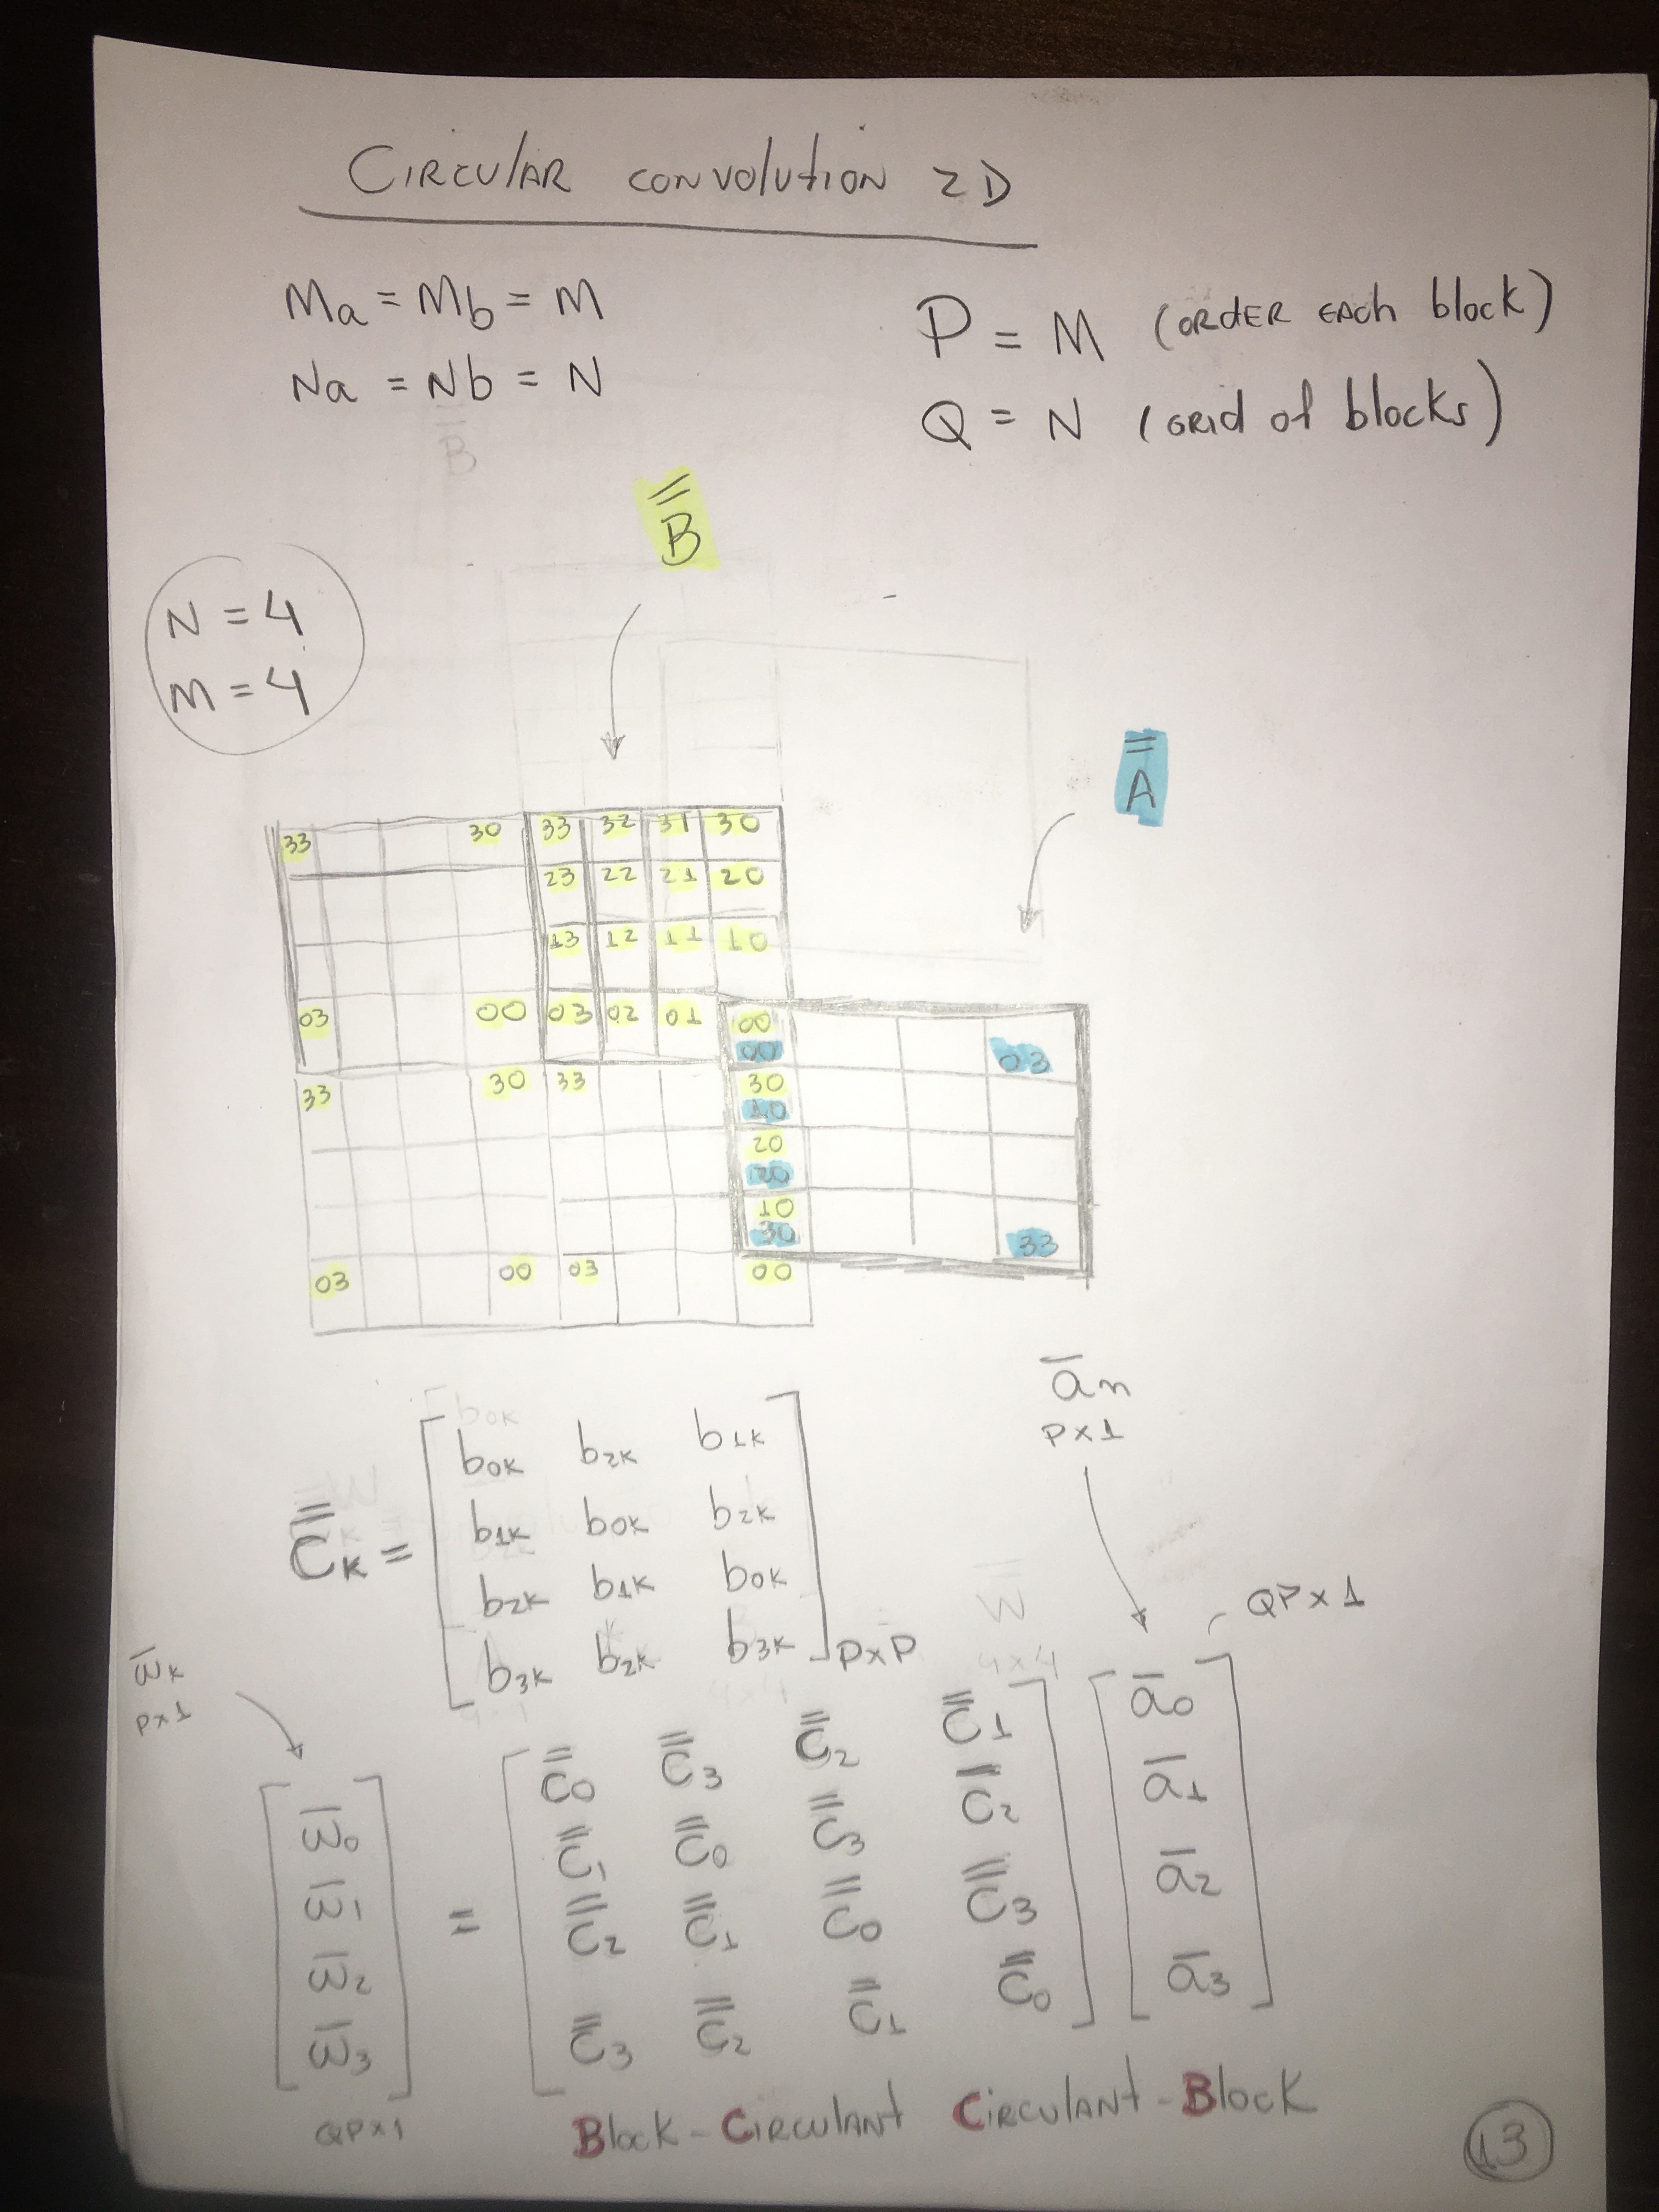 CIRCULAR CONVOLUTION 2D
Ma = Mb = M
Na = Nb = N
P = M (ORDER EACH block)
Q = N (GRID of blocks)
B̿
N = 4
M = 4
A̿
33 30 33 32 31 30
23 22 21 20
13 12 11 10
03 00 03 02 01 00
00 03
33 30 33 30
10
20
20
10
30 33
03 00 03 00
C̿K = [ b0K b2K b1K
b1K b0K b2K
b2K b1K b0K
b3K b2K b3K ] P×P
ān
P×1
QP×1
w̄K
P×1
[ w̄0 w̄1 w̄2 w̄3 ] QP×1
=
[ C̿0 C̿3 C̿2 C̿1
C̿1 C̿0 C̿3 C̿2
C̿2 C̿1 C̿0 C̿3
C̿3 C̿2 C̿1 C̿0 ]
[ ā0
ā1
ā2
ā3 ]
Block-CIRCULANT CIRCULANT-Block
13